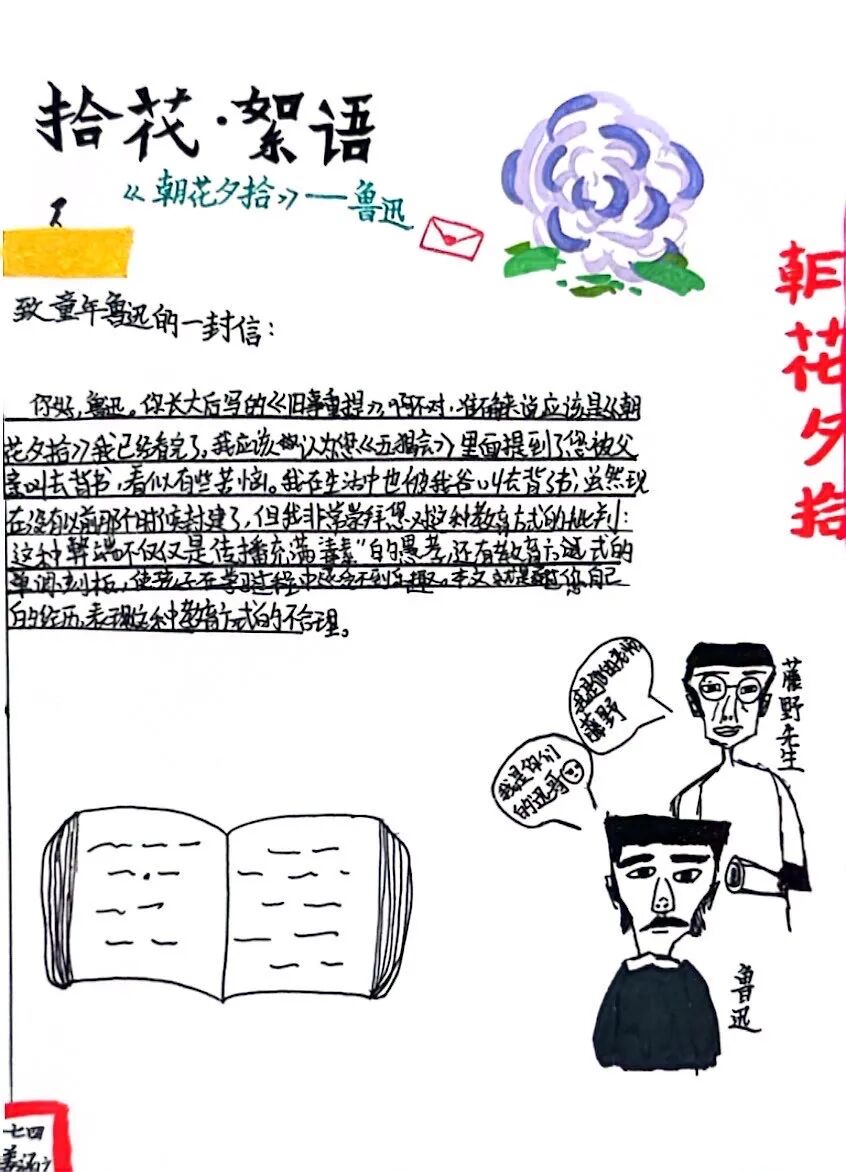 拾花·絮语
《朝花夕拾》——鲁迅
朝花夕拾
致童年鲁迅的一封信：
你好，鲁迅。你长大后写的《旧事重提》，啊不对，准确来说应该是《朝
花夕拾》我已经看完了，我应该认为您《五猖会》里面提到了您被父
亲叫去背书，看似有些苦恼。我在生活中也被我爸叫去背了书，虽然现
在没有以前那个时候封建了，但我非常崇拜您对这种教育方式的批判：
这种弊端不仅仅是传播充满“毒素”的愚孝，还有教育方式的
单调刻板，使孩子在学习过程中还会不到乐趣。本文就是通过您自己
的经历，表现这种教育方式的不合理。
我是你们的老师
藤野
我是你们
的迅哥
藤野先生
鲁迅
七四
姜